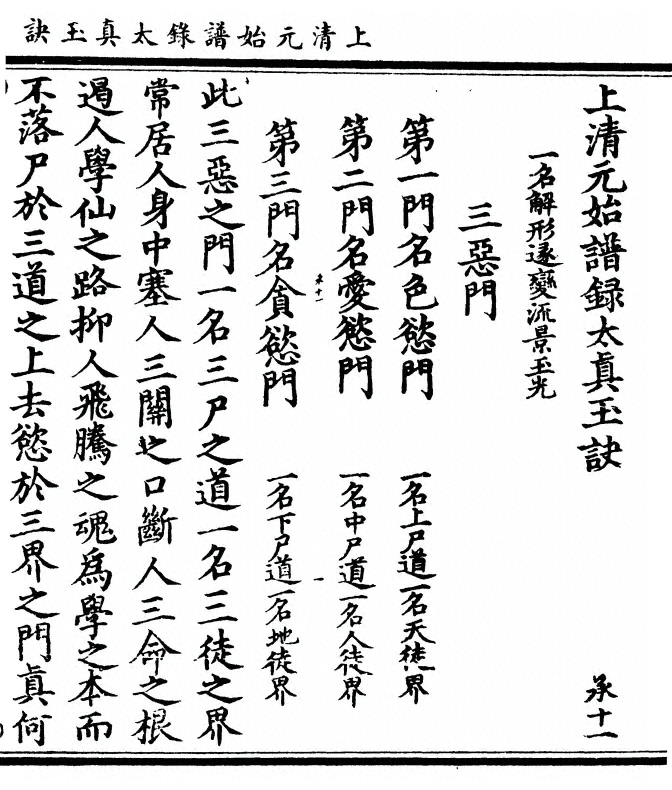 上清元始譜錄太真玉訣
上清元始譜録太真玉訣
承十一
一名解形遯變流景玉光
三惡門
第一門名色慾門 一名上尸道一名天徒界
第二門名愛慾門 一名中尸道一名人徒界
第三門名貪慾門 一名下尸道一名地徒界
此三惡之門一名三尸之道一名三徒之界
常居人身中塞人三關之口斷人三命之根
遏人學仙之路抑人飛騰之魂為學之本而
不落尸於三道之上去慾於三界之門真何